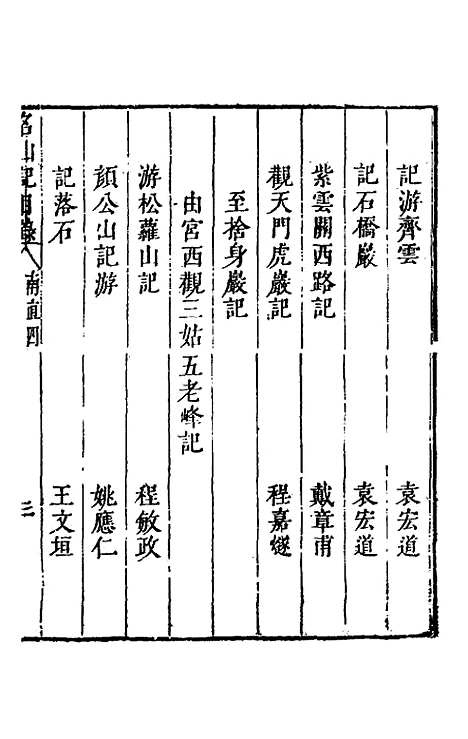 記游齊雲 袁宏道
記石橋巖 袁宏道
紫雲關西路記 戴章甫
觀天門虎巖記 程嘉燧
至捨身巖記
由宮西觀三姑五老峰記
游松蘿山記 程敏政
顏公山記游 姚應仁
記落石 王文垣
名山記目錄 南直四 三